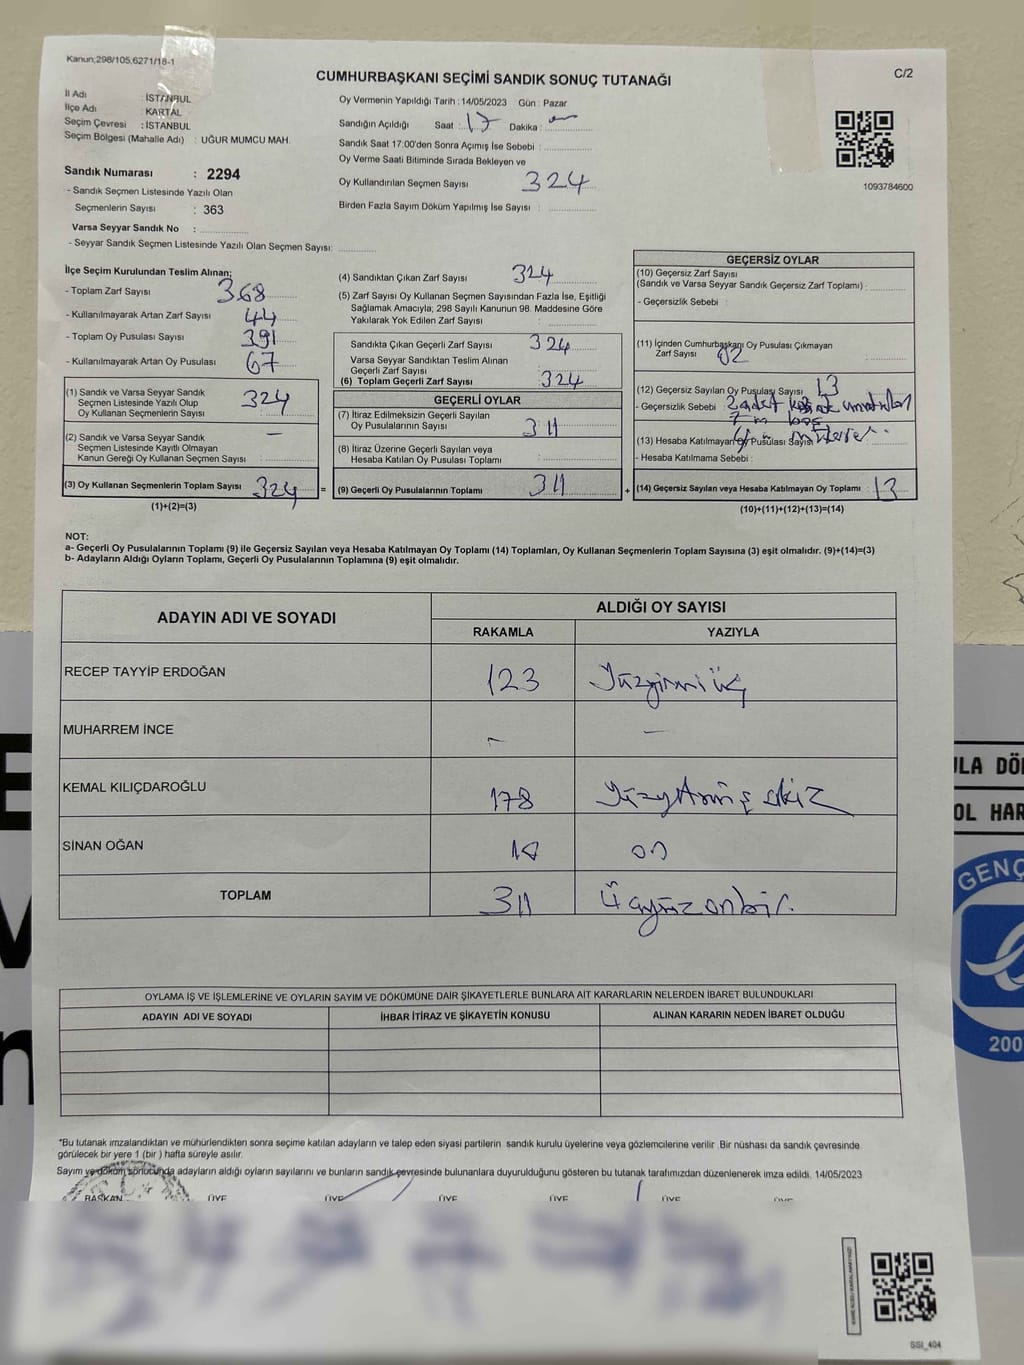 Kanun;298/105,6271/18-1
C/2
CUMHURBAŞKANI SEÇİMİ SANDIK SONUÇ TUTANAĞI
İl Adı : İSTANBUL
İlçe Adı : KARTAL
Seçim Çevresi : İSTANBUL
Seçim Bölgesi (Mahalle Adı) : UĞUR MUMCU MAH.
Sandık Numarası : 2294
- Sandık Seçmen Listesinde Yazılı Olan
Seçmenlerin Sayısı : 363
Varsa Seyyar Sandık No :
- Seyyar Sandık Seçmen Listesinde Yazılı Olan Seçmen Sayısı:
Oy Vermenin Yapıldığı Tarih : 14/05/2023 Gün : Pazar
Sandığın Açıldığı Saat : 17 Dakika :
Sandık Saat 17:00'den Sonra Açımış İse Sebebi :
Oy Verme Saati Bitiminde Sırada Bekleyen ve
Oy Kullandırılan Seçmen Sayısı 324
Birden Fazla Sayım Döküm Yapılmış İse Sayısı :
1093784600
İlçe Seçim Kurulundan Teslim Alınan;
- Toplam Zarf Sayısı 368
- Kullanılmayarak Artan Zarf Sayısı 44
- Toplam Oy Pusulası Sayısı 391
- Kullanılmayarak Artan Oy Pusulası 67
(1) Sandık ve Varsa Seyyar Sandık
Seçmen Listesinde Yazılı Olup
Oy Kullanan Seçmenlerin Sayısı : 324
(2) Sandık ve Varsa Seyyar Sandık
Seçmen Listesinde Kayıtlı Olmayan
Kanun Gereği Oy Kullanan Seçmen Sayısı : —
(3) Oy Kullanan Seçmenlerin Toplam Sayısı 324
(1)+(2)=(3)
(4) Sandıktan Çıkan Zarf Sayısı 324
(5) Zarf Sayısı Oy Kullanan Seçmen Sayısından Fazla İse, Eşitliği
Sağlamak Amacıyla; 298 Sayılı Kanunun 98. Maddesine Göre
Yakılarak Yok Edilen Zarf Sayısı :
Sandıkta Çıkan Geçerli Zarf Sayısı : 324
Varsa Seyyar Sandıktan Teslim Alınan
Geçerli Zarf Sayısı :
(6) Toplam Geçerli Zarf Sayısı : 324
GEÇERLİ OYLAR
(7) İtiraz Edilmeksizin Geçerli Sayılan
Oy Pusulalarının Sayısı : 311
(8) İtiraz Üzerine Geçerli Sayılan veya
Hesaba Katılan Oy Pusulası Toplamı :
= (9) Geçerli Oy Pusulalarının Toplamı : 311
GEÇERSİZ OYLAR
(10) Geçersiz Zarf Sayısı
(Sandık ve Varsa Seyyar Sandık Geçersiz Zarf Toplamı) :
- Geçersizlik Sebebi :
(11) İçinden Cumhurbaşkanı Oy Pusulası Çıkmayan
Zarf Sayısı 02
(12) Geçersiz Sayılan Oy Pusulası Sayısı 13
- Geçersizlik Sebebi : 2 adet
boş
(13) Hesaba Katılmayan Oy Pusulası Sayısı
- Hesaba Katılmama Sebebi :
+ (14) Geçersiz Sayılan veya Hesaba Katılmayan Oy Toplamı : 13
(10)+(11)+(12)+(13)=(14)
NOT:
a- Geçerli Oy Pusulalarının Toplamı (9) ile Geçersiz Sayılan veya Hesaba Katılmayan Oy Toplamı (14) Toplamları, Oy Kullanan Seçmenlerin Toplam Sayısına (3) eşit olmalıdır. (9)+(14)=(3)
b- Adayların Aldığı Oyların Toplamı, Geçerli Oy Pusulalarının Toplamına (9) eşit olmalıdır.
ADAYIN ADI VE SOYADI
ALDIĞI OY SAYISI
RAKAMLA YAZIYLA
RECEP TAYYİP ERDOĞAN 123 Yüzyirmi üç
MUHARREM İNCE - —
KEMAL KILIÇDAROĞLU 178 Yüzyetmiş sekiz
SİNAN OĞAN 10 on
TOPLAM 311 Üçyüzonbir.
OYLAMA İŞ VE İŞLEMLERİNE VE OYLARIN SAYIM VE DÖKÜMÜNE DAİR ŞİKAYETLERLE BUNLARA AİT KARARLARIN NELERDEN İBARET BULUNDUKLARI
ADAYIN ADI VE SOYADI İHBAR İTİRAZ VE ŞİKAYETİN KONUSU ALINAN KARARIN NEDEN İBARET OLDUĞU
*Bu tutanak imzalandıktan ve mühürlendikten sonra seçime katılan adayların ve talep eden siyasi partilerin sandık kurulu üyelerine veya gözlemcilerine verilir. Bir nüshası da sandık çevresinde
görülecek bir yere 1 (bir ) hafta süreyle asılır.
Sayım ve döküm sonucunda adayların aldığı oyların sayılarını ve bunların sandık çevresinde bulunanlara duyurulduğunu gösteren bu tutanak tarafımızdan düzenlenerek imza edildi. 14/05/2023
BAŞKAN ÜYE ÜYE ÜYE ÜYE ÜYE ÜYE
SSI_404
ULA DÖ
OL HAR
GENÇ
200